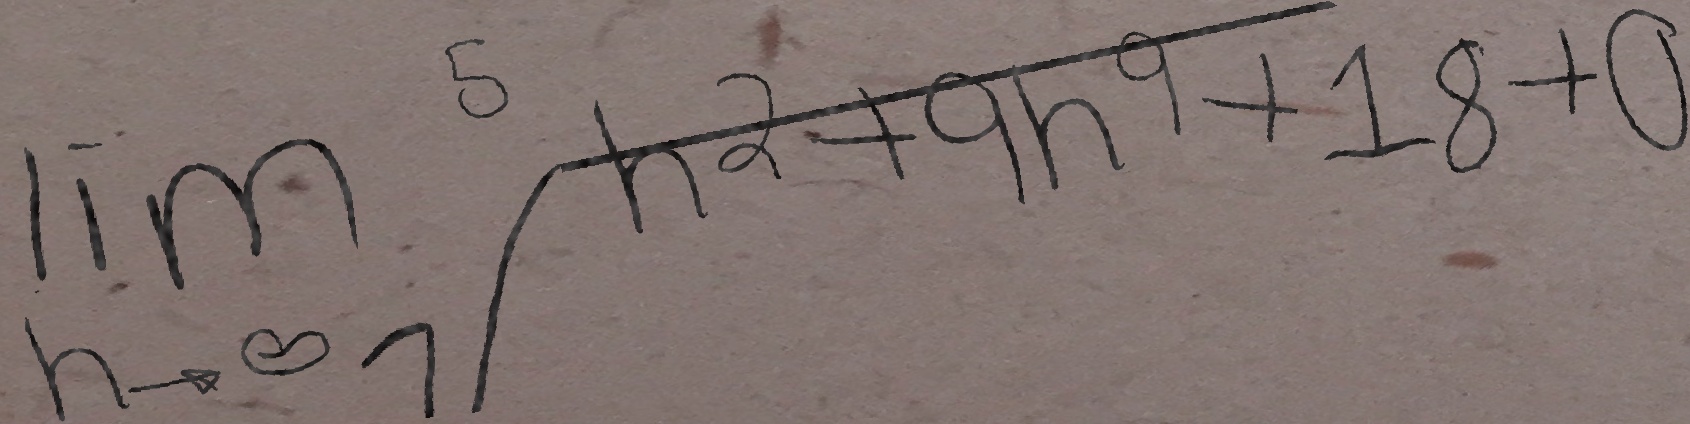 lim_{h→∞} \sqrt[5]{h^2+9h^9}+18+0